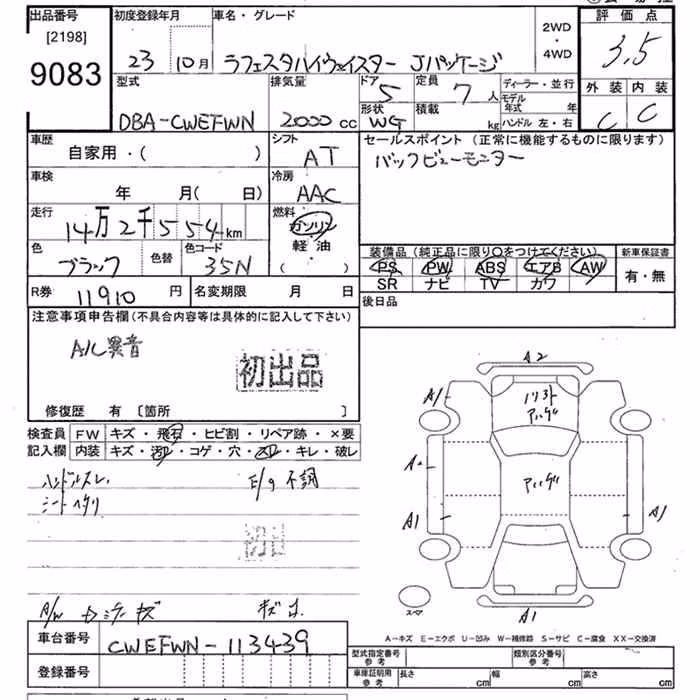 出品番号 初度登録年月 車名・グレード 2WD・4WD 評価点
[2198]
9083 23 10月 ラフェスタハイウェイスター Jパッケージ 3.5
型式 排気量 ドア 5 定員 7人 ディーラー・並行 外装 内装
DBA-CWEFWN 2000cc 形状 WG 積載 kg モデル年式 年 ハンドル 左・右 C C
車歴 自家用・( ) シフト AT セールスポイント(正常に機能するものに限ります)
バックビューモニター
車検 年 月(日) 冷房 AAC
走行 14万2千554km 燃料 ガソリン 軽油 ( )
色 ブラック 色替 色コード 35N
装備品(純正品に限り○をつけてください) 新車保証書
PS PW ABS エアB AW 有・無
SR ナビ TV カワ
R券 11910円 名変期限 月 日 後日品
注意事項申告欄(不具合内容等は具体的に記入して下さい)
A/C異音
初出品
修復歴 有 〔箇所 〕
検査員 FW キズ・飛石・ヒビ割・リペア跡・×要
記入欄 内装 キズ・汚れ・コゲ・穴・スレ・キレ・破レ
ハンドルスレ E/g不調
シートヘタリ
初出
A/W キズ
A2
A1
A1
A1
A1
スペア
A-キズ E-エクボ U-凹み W-補修跡 S-サビ C-腐食 XX-交換済
車台番号 CWEFWN-113439
登録番号
型式指定番号 参考 類別区分番号 参考
車庫証明用 参考 長さ cm 幅 cm 高さ cm